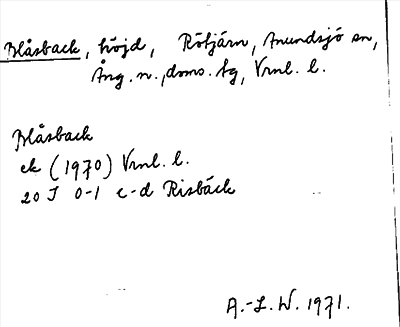 Blåsback, höjd, Rötjärn, Anundsjö sn,
Ång. n., doms. tg, Vrnl. l.
Blåsback
ek (1970) Vrnl. l.
20 J 0-1 c-d Risbäck
A.-L. W. 1971.